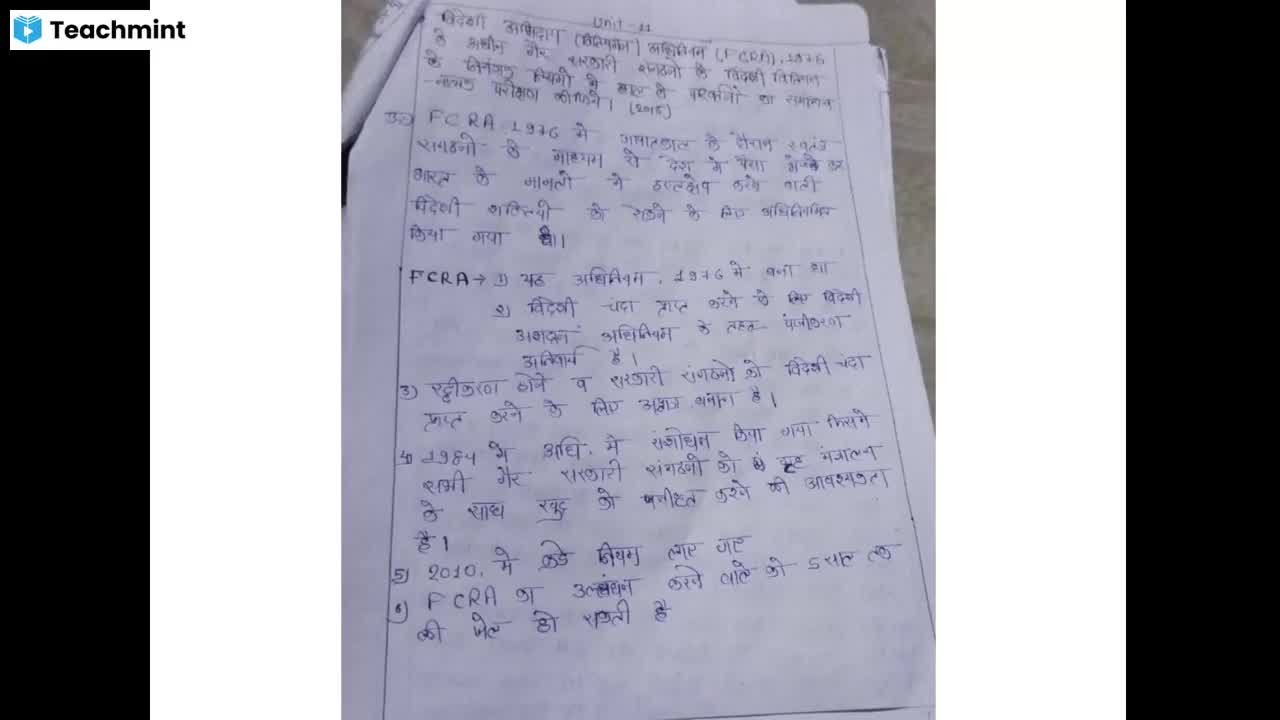 Teachmint
Unit - 11
विदेशी अभिदाय (विनियमन) अधिनियम (FCRA), 1976
के अधीन गैर सरकारी संगठनों के विदेशी वित्तियन
के नियंत्रक नियमों में हाल के परिवर्तनों का समालोच
नात्मक परीक्षण कीजिये। (2015)
उ०) FCRA 1976 में आपातकाल के दौरान स्वतंत्र
संगठनों के माध्यम से देश में पैसा भेजकर
भारत के मामलों में हस्तक्षेप करने वाली
विदेशी शक्तियों को रोकने के लिए अधिनियमित
किया गया था।
FCRA → 1) यह अधिनियम, 1976 में बना था
2) विदेशी चंदा प्राप्त करने के लिए विदेशी
अंशदान अधिनियम के तहत पंजीकरण
अनिवार्य है।
3) होने व सरकारी संगठनों को विदेशी चंदा
प्राप्त करने के लिए है।
4) 1984 में अधि. में संशोधन किया गया जिसमें
सभी गैर सरकारी संगठनों को गृह मंत्रालय
के साथ खुद को पंजीकृत करने की आवश्यकता
है।
5) 2010, में कड़े नियम लाए गए
6) FCRA का उल्लंघन करने वाले को 5 साल तक
की जेल हो सकती है